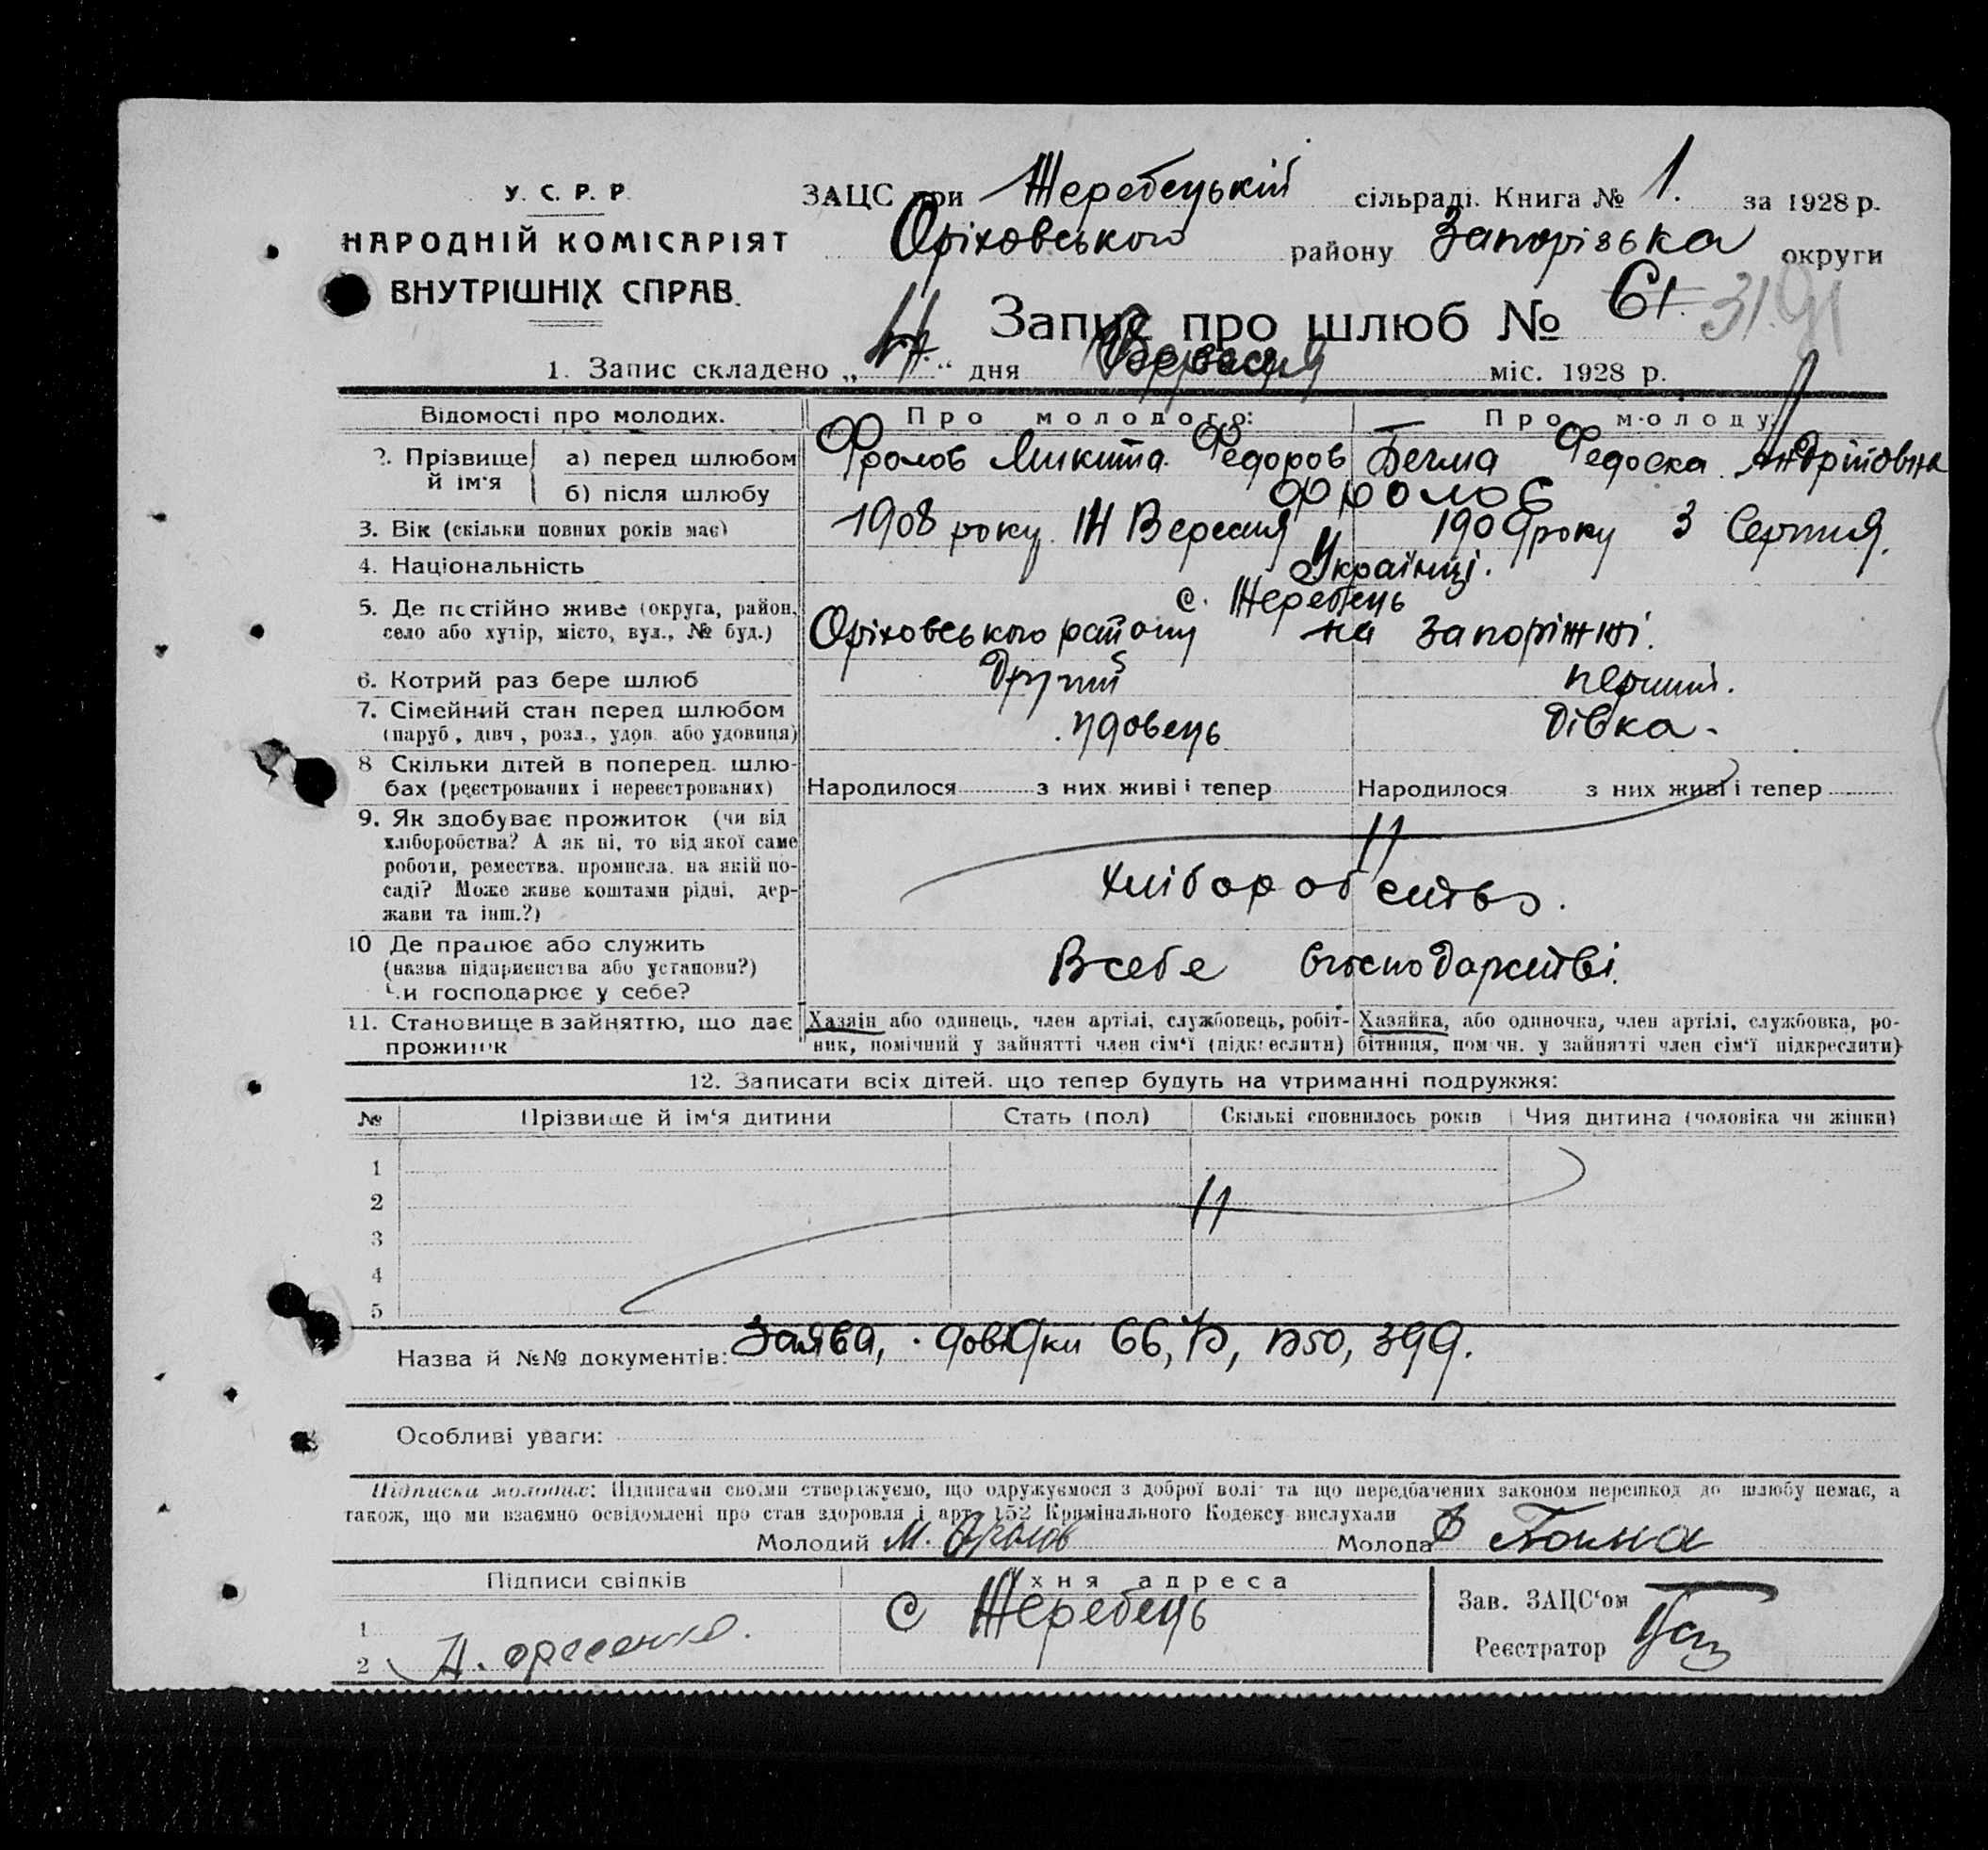 У. С. Р. Р.
НАРОДНІЙ КОМІСАРІЯТ
ВНУТРІШНІХ СПРАВ.
ЗАЦС при Жеребецькій сільраді. Книга № 1. за 1928 р.
Оріховського району Запорізька округи
Запис про шлюб № 61.
1. Запис складено „ “ дня Вересня міс. 1928 р.
Відомості про молодих. Про молодого: Про молоду:
2. Прізвище й ім'я а) перед шлюбом Фролов Микита Федоров Бечма Федоска Андрійовна
б) після шлюбу Фролов
3. Вік (скільки повних років має) 1908 року Вересня 1909 року 3 Серпня.
4. Національність Українці.
5. Де постійно живе (округа, район, село або хутір, місто, вул., № буд.) с. Жеребець
Оріховського району на Запоріжжі.
6. Котрий раз бере шлюб Другий перший.
7. Сімейний стан перед шлюбом (паруб., дівч., розл., удов. або удовиця) удовець дівка.
8 Скільки дітей в поперед. шлюбах (реєстрованих і нереєстрованих) Народилося з них живі і тепер Народилося з них живі і тепер
9. Як здобуває прожиток (чи від
хліборобства? А як ні, то від якої саме
роботи, ремества, промисла, на якій по-
саді? Може живе коштами рідні, дер-
жави та інш.?)
Хліборобство.
10 Де працює або служить
(назва підприємства або установи?)
Чи господарює у себе?
В себе вгосподарстві.
11. Становище в зайняттю, що дає прожиток
Хазяін або одинець, член артілі, службовець, робіт-
ник, помічний у зайнятті член сім'ї (підкреслити)
Хазяйка, або одиночка, член артілі, службовка, ро-
бітниця, помічн. у зайнятті член сім'ї підкреслити)
12. Записати всіх дітей, що тепер будуть на утриманні подружжя:
№ Прізвище й ім'я дитини Стать (пол) Скількі сповнилось років Чия дитина (чоловіка чи жінки)
1
2
3
4
5
Назва й №№ документів: Заява, довідки 66, 399.
Особливі уваги:
Підписка молодих: Підписами своїми стверджуємо, що одружуємося з доброї волі та що передбачених законом перешкод до шлюбу немає, а
також, що ми взаємно освідомлені про стан здоровля і арт. 152 Кримінального Кодексу вислухали
Молодий М. Фролов Молода Ф
Підписи свідків Їхня адреса
1
2
с Жеребець
Зав. ЗАЦС'ом
Реєстратор